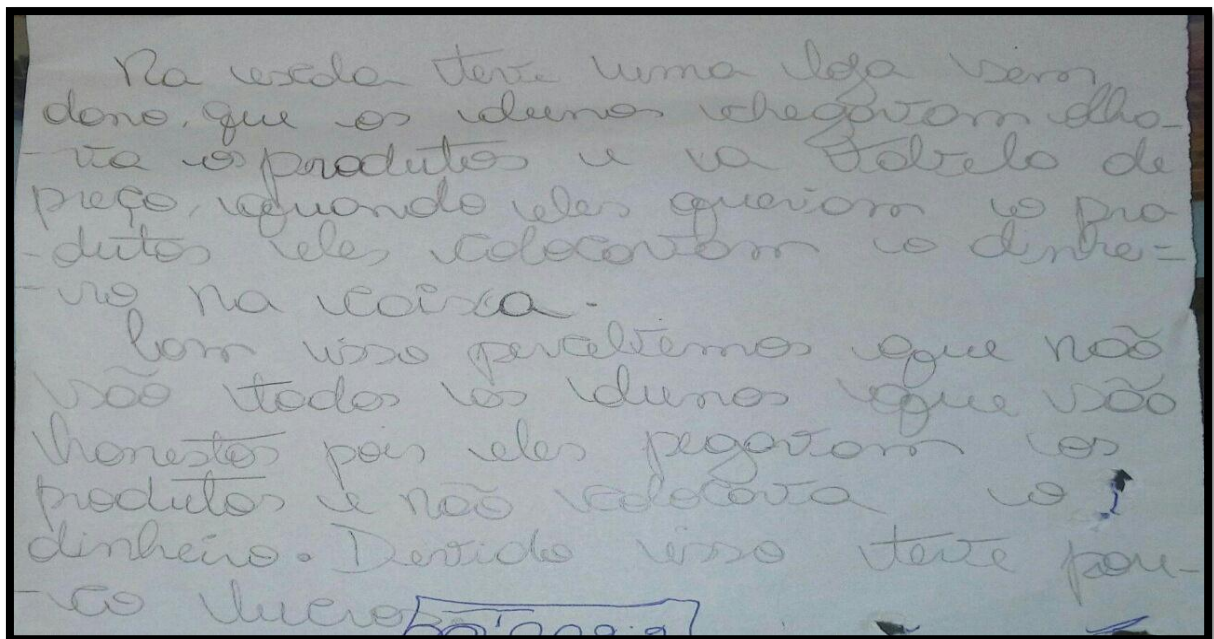 Na escola teve uma loja sem
dono, que os alunos chegavam olha-
-va os produtos e va tabela de
preço, quando eles queriam o pro
-dutos eles colocavam o dinhe-
-iro na caixa.
Com isso percebemos que não
são todos os alunos que são
honestos pois eles pegavam os
produtos e não colocava o
dinheiro. Devido isso teve pou-
-co lucro